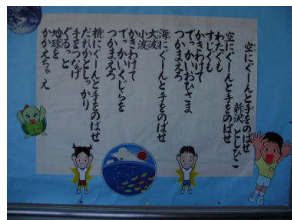 空にぐーんと手をのばせ
新沢としひこ
空にぐーんと手をのばせ
わたぐも
すじぐもも
かきわけて
でっかいおひさま
つかまえろ
海にぐーんと手をのばせ
大波
小波
かきわけて
でっかいくじらを
つかまえろ
横にぐーんと手をのばせ
だれかとしっかり
手をつなげ
ぐるっと
地球を
かかえちゃえ